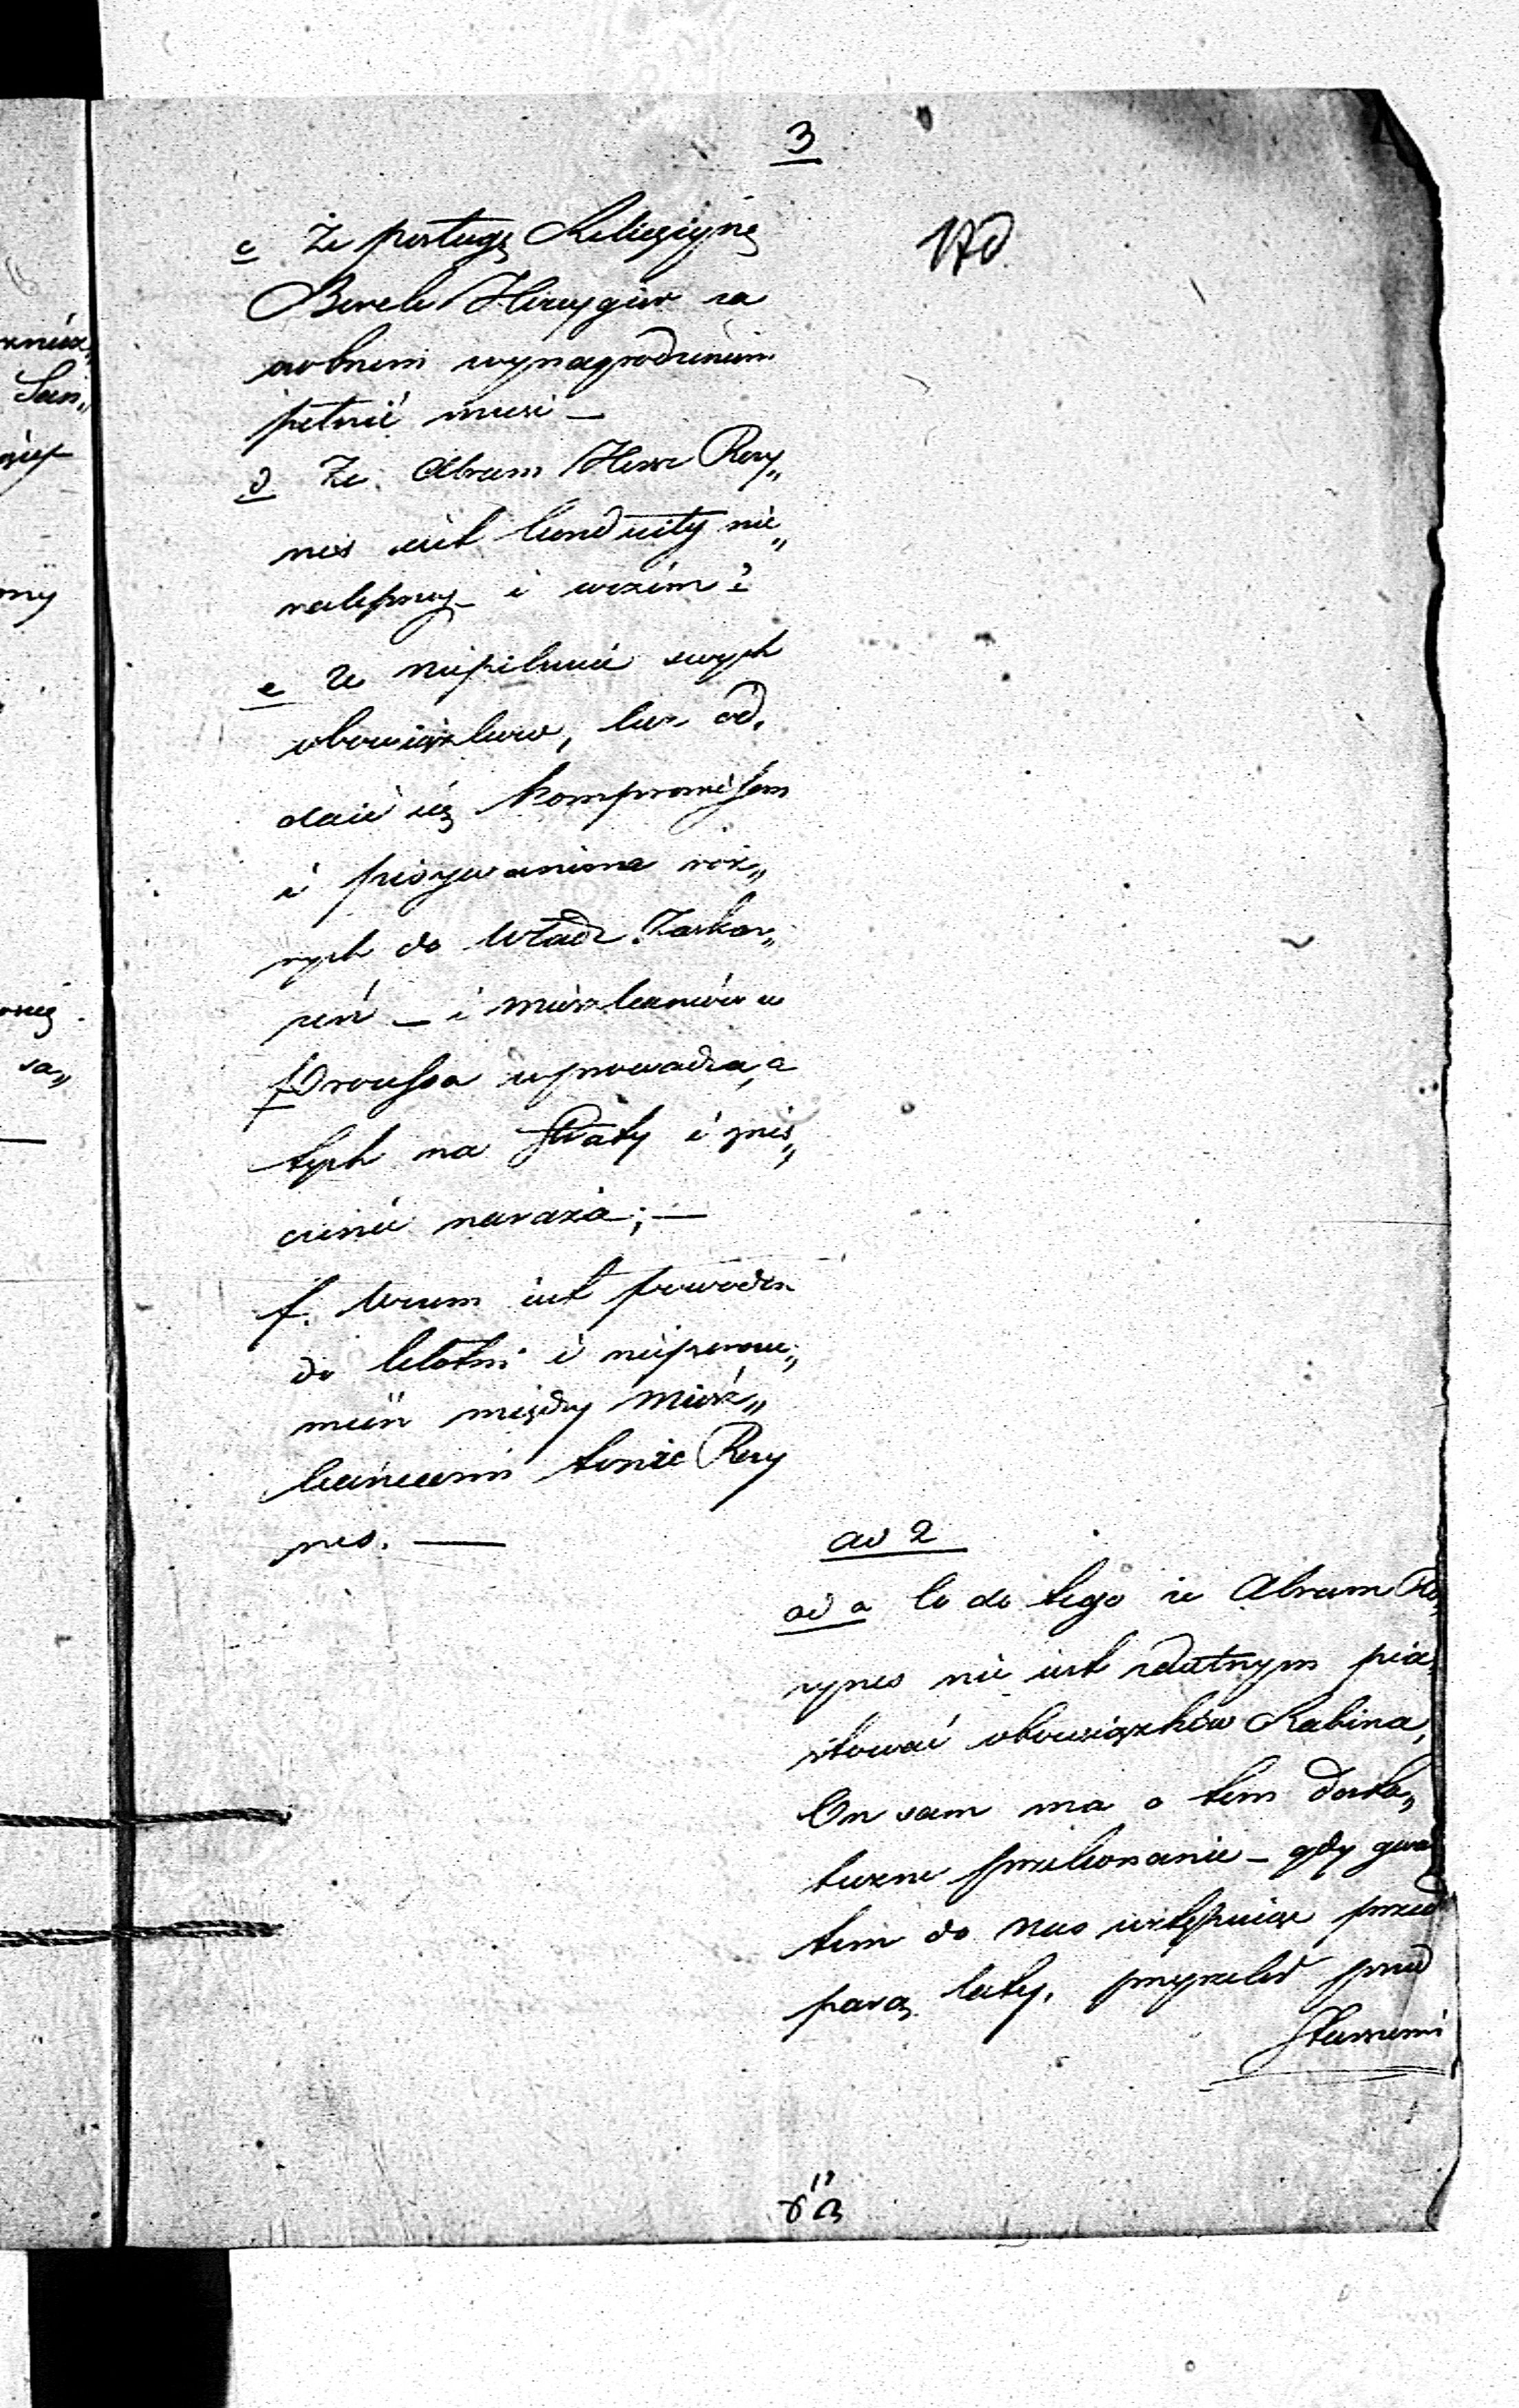 3
170
c Że posługę Religijną
Berek Hercygier za
osobnem wynagrodzeniem
pełnić musi —
d Że Abram Hersz Rey„
nes iest konduity nie„
nalepszey — i w czém?
e że niepilnuie swych
obowiązkow, lecz od„
daie się kompromissom
i pisywaniom róż„
nych do Władz Zaskar„
żeń — i mieszkańców w
Processa wprowadza, a
tych na straty i znis„
czenie naraża; —
f. Wczem iest powodem
do kłótni i nieporozu„
mień między Miesz„
kańcami tenże Rey
nes. —
ad 2
ad a Co do tego że Abram Re„
ynes nie iest zdatnym pia„
stować obowiązków Rabina,
On sam ma o tem dosta„
teczne przekonanie — gdy
tem do nas wstępuiąc przed
parą laty, przyrzekł przed
Starszemi